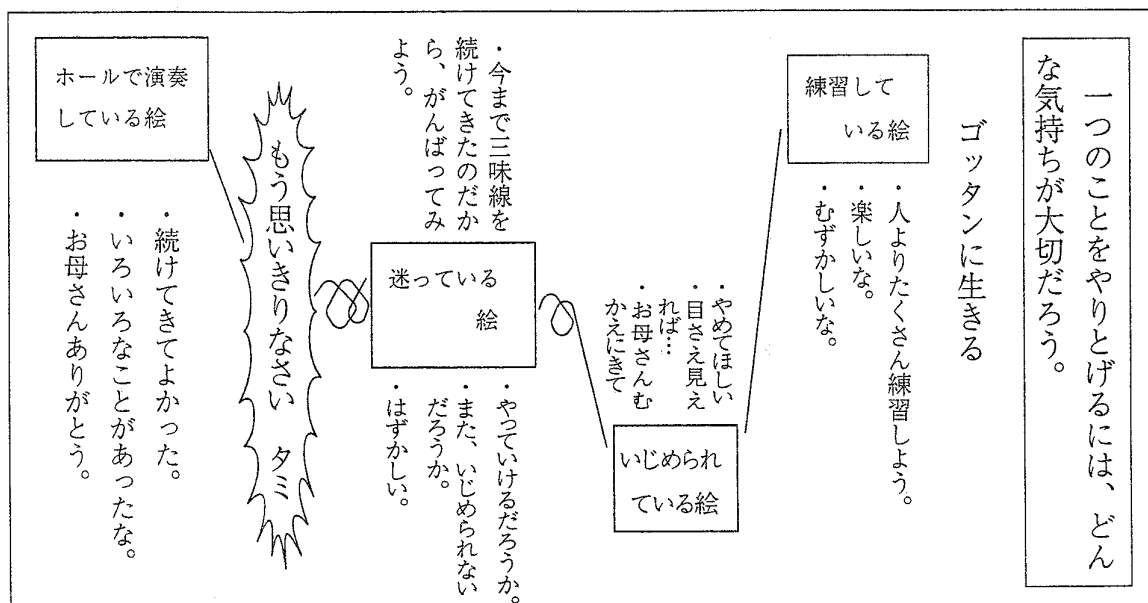 一つのことをやりとげるには、どん
な気持ちが大切だろう。
ゴッタンに生きる
練習して
いる絵
・人よりたくさん練習しよう。
・楽しいな。
・むずかしいな。
・やめてほしい
・目さえ見え
れば…
・お母さんむ
かえにきて
いじめられ
ている絵
・今まで三味線を
続けてきたのだか
ら、がんばってみ
よう。
迷っている
絵
・やっていけるだろうか。
・また、いじめられない
だろうか。
・はずかしい。
もう思いきりなさい タミ
ホールで演奏
している絵
・続けてきてよかった。
・いろいろなことがあったな。
・お母さんありがとう。